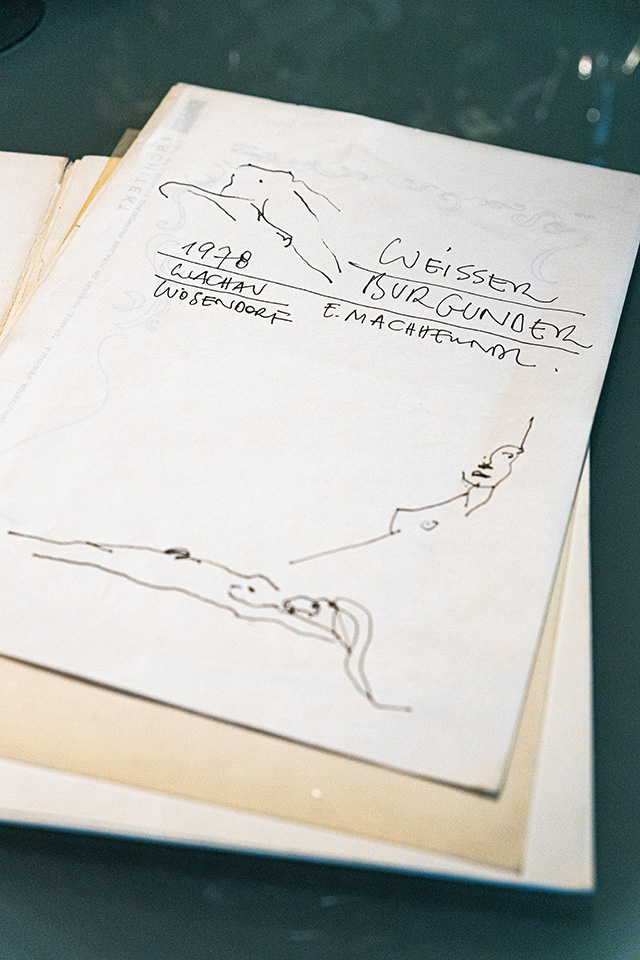 WEISSER
BURGUNDER
1978
WACHAU
WÖSENDORF E. MACHHERNDL.
ARCHITEKT